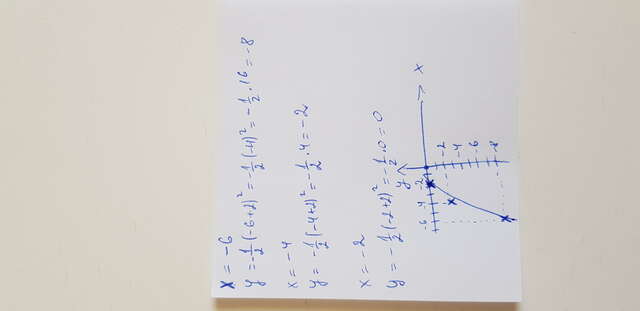 x = -6
y = -1/2(-6+2)² = -1/2(-4)² = -1/2·16 = -8
x = -4
y = -1/2(-4+2)² = -1/2·4 = -2
x = -2
y = -1/2(-2+2)² = -1/2·0 = 0
y
x
-6 -4 -2
-2
-4
-6
-8